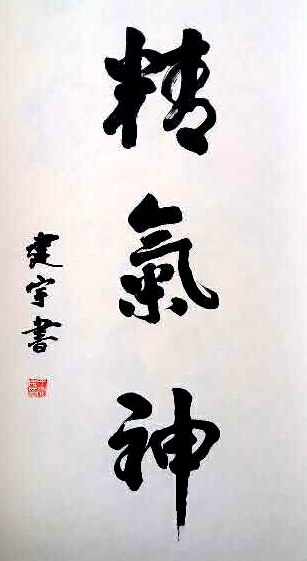 精氣神
建宇書